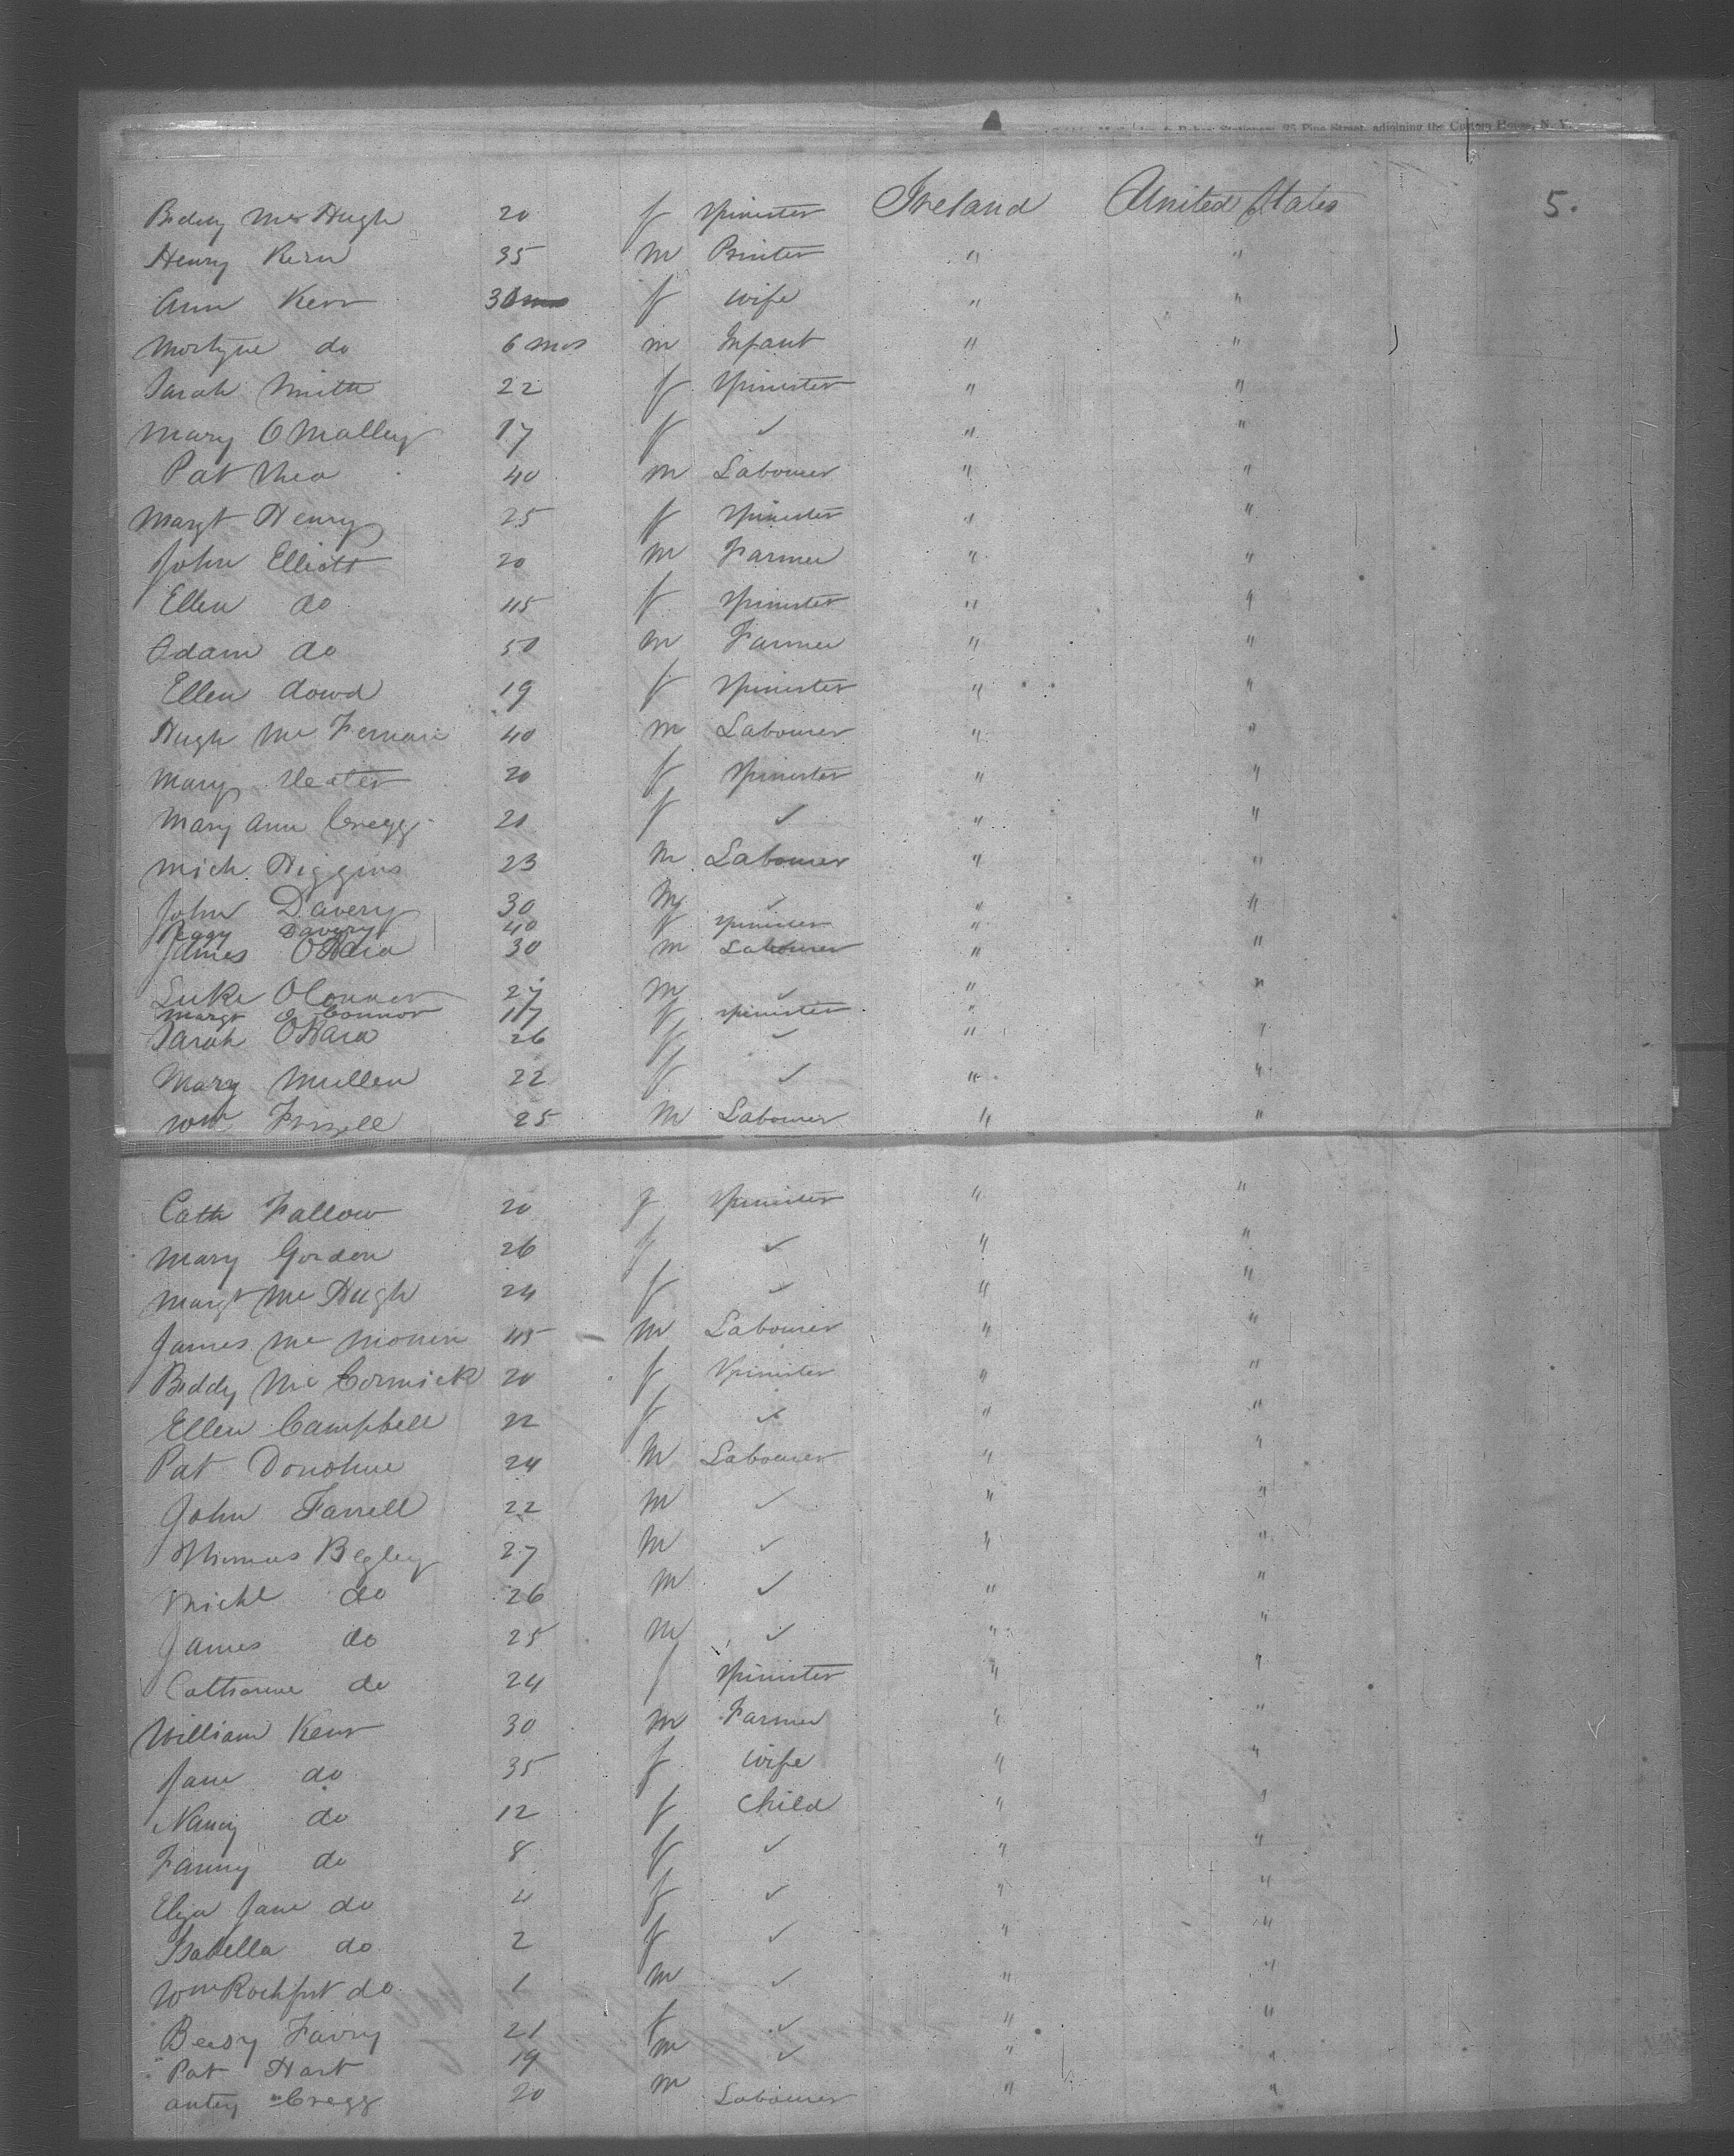 Stationers, 95 Pine Street, adjoining the Custom House, N. Y.
5.
Biddy Mc Hugh 20 f Spinster Ireland United States
Henry Kerr 35 m Printer " "
Ann Kerr 30 f wife " "
do 6 mos m Infant " "
Sarah Smith 22 f Spinster " "
Mary O Malley 17 f ✓ " "
Pat 40 m Labourer " "
Margt Henry 25 f Spinster " "
John Elliott 20 m Farmer " "
Ellen do 45 f Spinster " "
Adam do 50 m Farmer " "
Ellen dowd 19 f Spinster " "
Hugh Mc 40 m Labourer " "
Mary 20 f Spinster " "
Mary Ann Cregg 21 f ✓ " "
Mich Higgins 23 m Labourer " "
John Davery 30 m ✓ " "
Peggy Davery 40 f spinster "
James OHara 30 m Labourer " "
Luke OConnor 27 m ✓ " "
Margt O Connor 17 f spinster "
Sarah OHara 26 f ✓ " "
Mary Mullen 22 f ✓ " "
Wm Frizell 25 m Labourer " "
Cath Fallow 20 f Spinster " "
Mary Gordon 26 f ✓ " "
Margt Mc Hugh 24 f ✓ " "
James Mc 45 m Labourer " "
Biddy Mc Cormick 20 f Spinster " "
Ellen Campbell 22 f ✓ " "
Pat Donohue 24 m Labourer " "
John Farrell 22 m ✓ " "
Thomas Begley 27 m ✓ " "
Michl do 26 m ✓ " "
James do 25 m ✓ " "
Catharine do 24 f Spinster " "
William Kerr 30 m Farmer " "
Jane do 35 f wife " "
Nancy do 12 f Child " "
Fanny do 8 f ✓ " "
Eliza Jane do 4 f ✓ " "
Isabella do 2 f ✓ " "
Wm Rochfort do 1 m ✓ " "
Betsy Farry 21 f ✓ " "
Pat Hart 19 m ✓ " "
Cregg 20 m Labourer " "